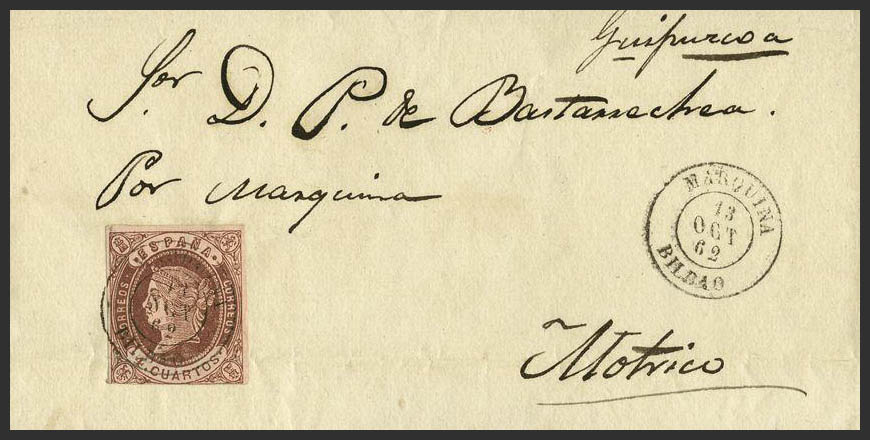 Guipuzcoa
Sor D. P. de Bastarrechea.
Por Marquina
MARQUINA
13
OCT
62
BILBAO
ESPAÑA
CORREOS
CORREOS
4 CUARTOS
Motrico